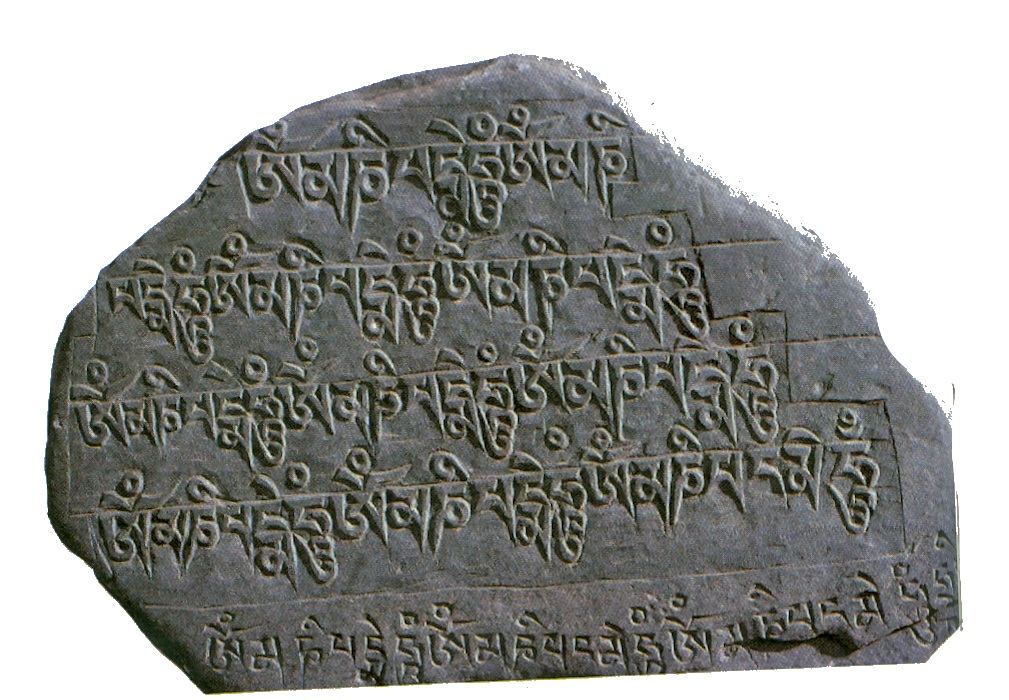 ཨོཾམཎིཔདྨེཧཱུྃཨོཾམཎི
པདྨེཧཱུྃཨོཾམཎིཔདྨེཧཱུྃཨོཾམཎིཔདྨེཧཱུྃ
ཨོཾམཎིཔདྨེཧཱུྃཨོཾམཎིཔདྨེཧཱུྃཨོཾམཎིཔདྨེཧཱུྃ
ཨོཾམཎིཔདྨེཧཱུྃཨོཾམཎིཔདྨེཧཱུྃཨོཾམཎིཔདམེཧཱུྃ
ཨོཾམཎིཔདྨེཧཱུྃཨོཾམཎིཔདམེཧཱུྃཨོཾམཎིཔདམེ